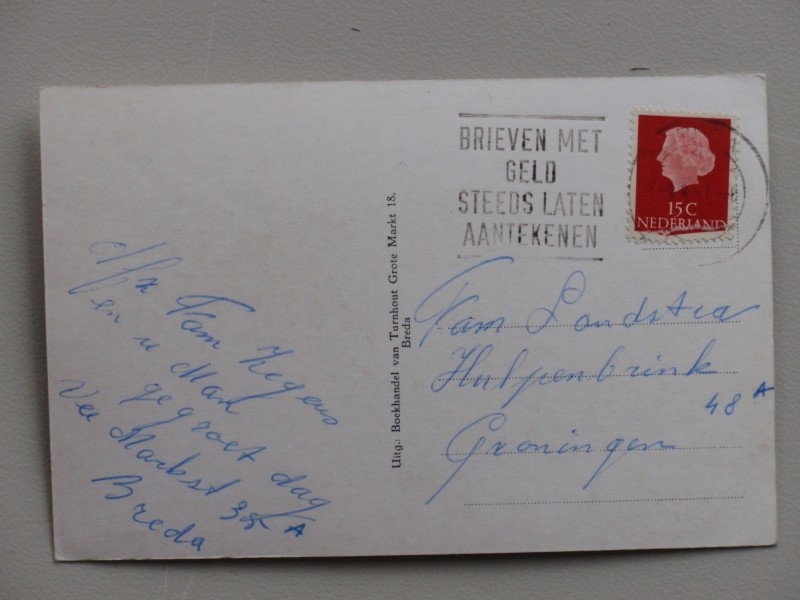 BRIEVEN MET
GELD
STEEDS LATEN
AANTEKENEN
15 C
NEDERLAND
Uitg.: Boekhandel van Turnhout Grote Markt 18.
Breda
Fam Landstra
Hulpenbrink
48 A
Groningen
Afz Fam Zegers
en u Man
gegroet dag
Vee Markst 35 A
Breda